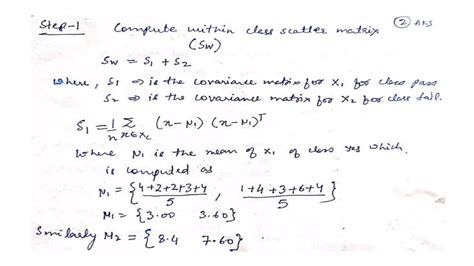 Step-1 Compute within class scatter matrix ② AKS
(Sw)
Sw = S1 + S2
where, S1 ⇒ is the covariance matrix for X1 for class pass
S2 ⇒ is the covariance matrix for X2 for class fail.
S1 = 1/n Σ x∈Xc (x-M1) (x-M1)^T
Where M1 is the mean of X1 of class yes which
is computed as
M1 = {4+2+2+3+4/5, 1+4+3+6+4/5}
M1 = {3.00 3.60}
Similarly M2 = {8.4 7.60}